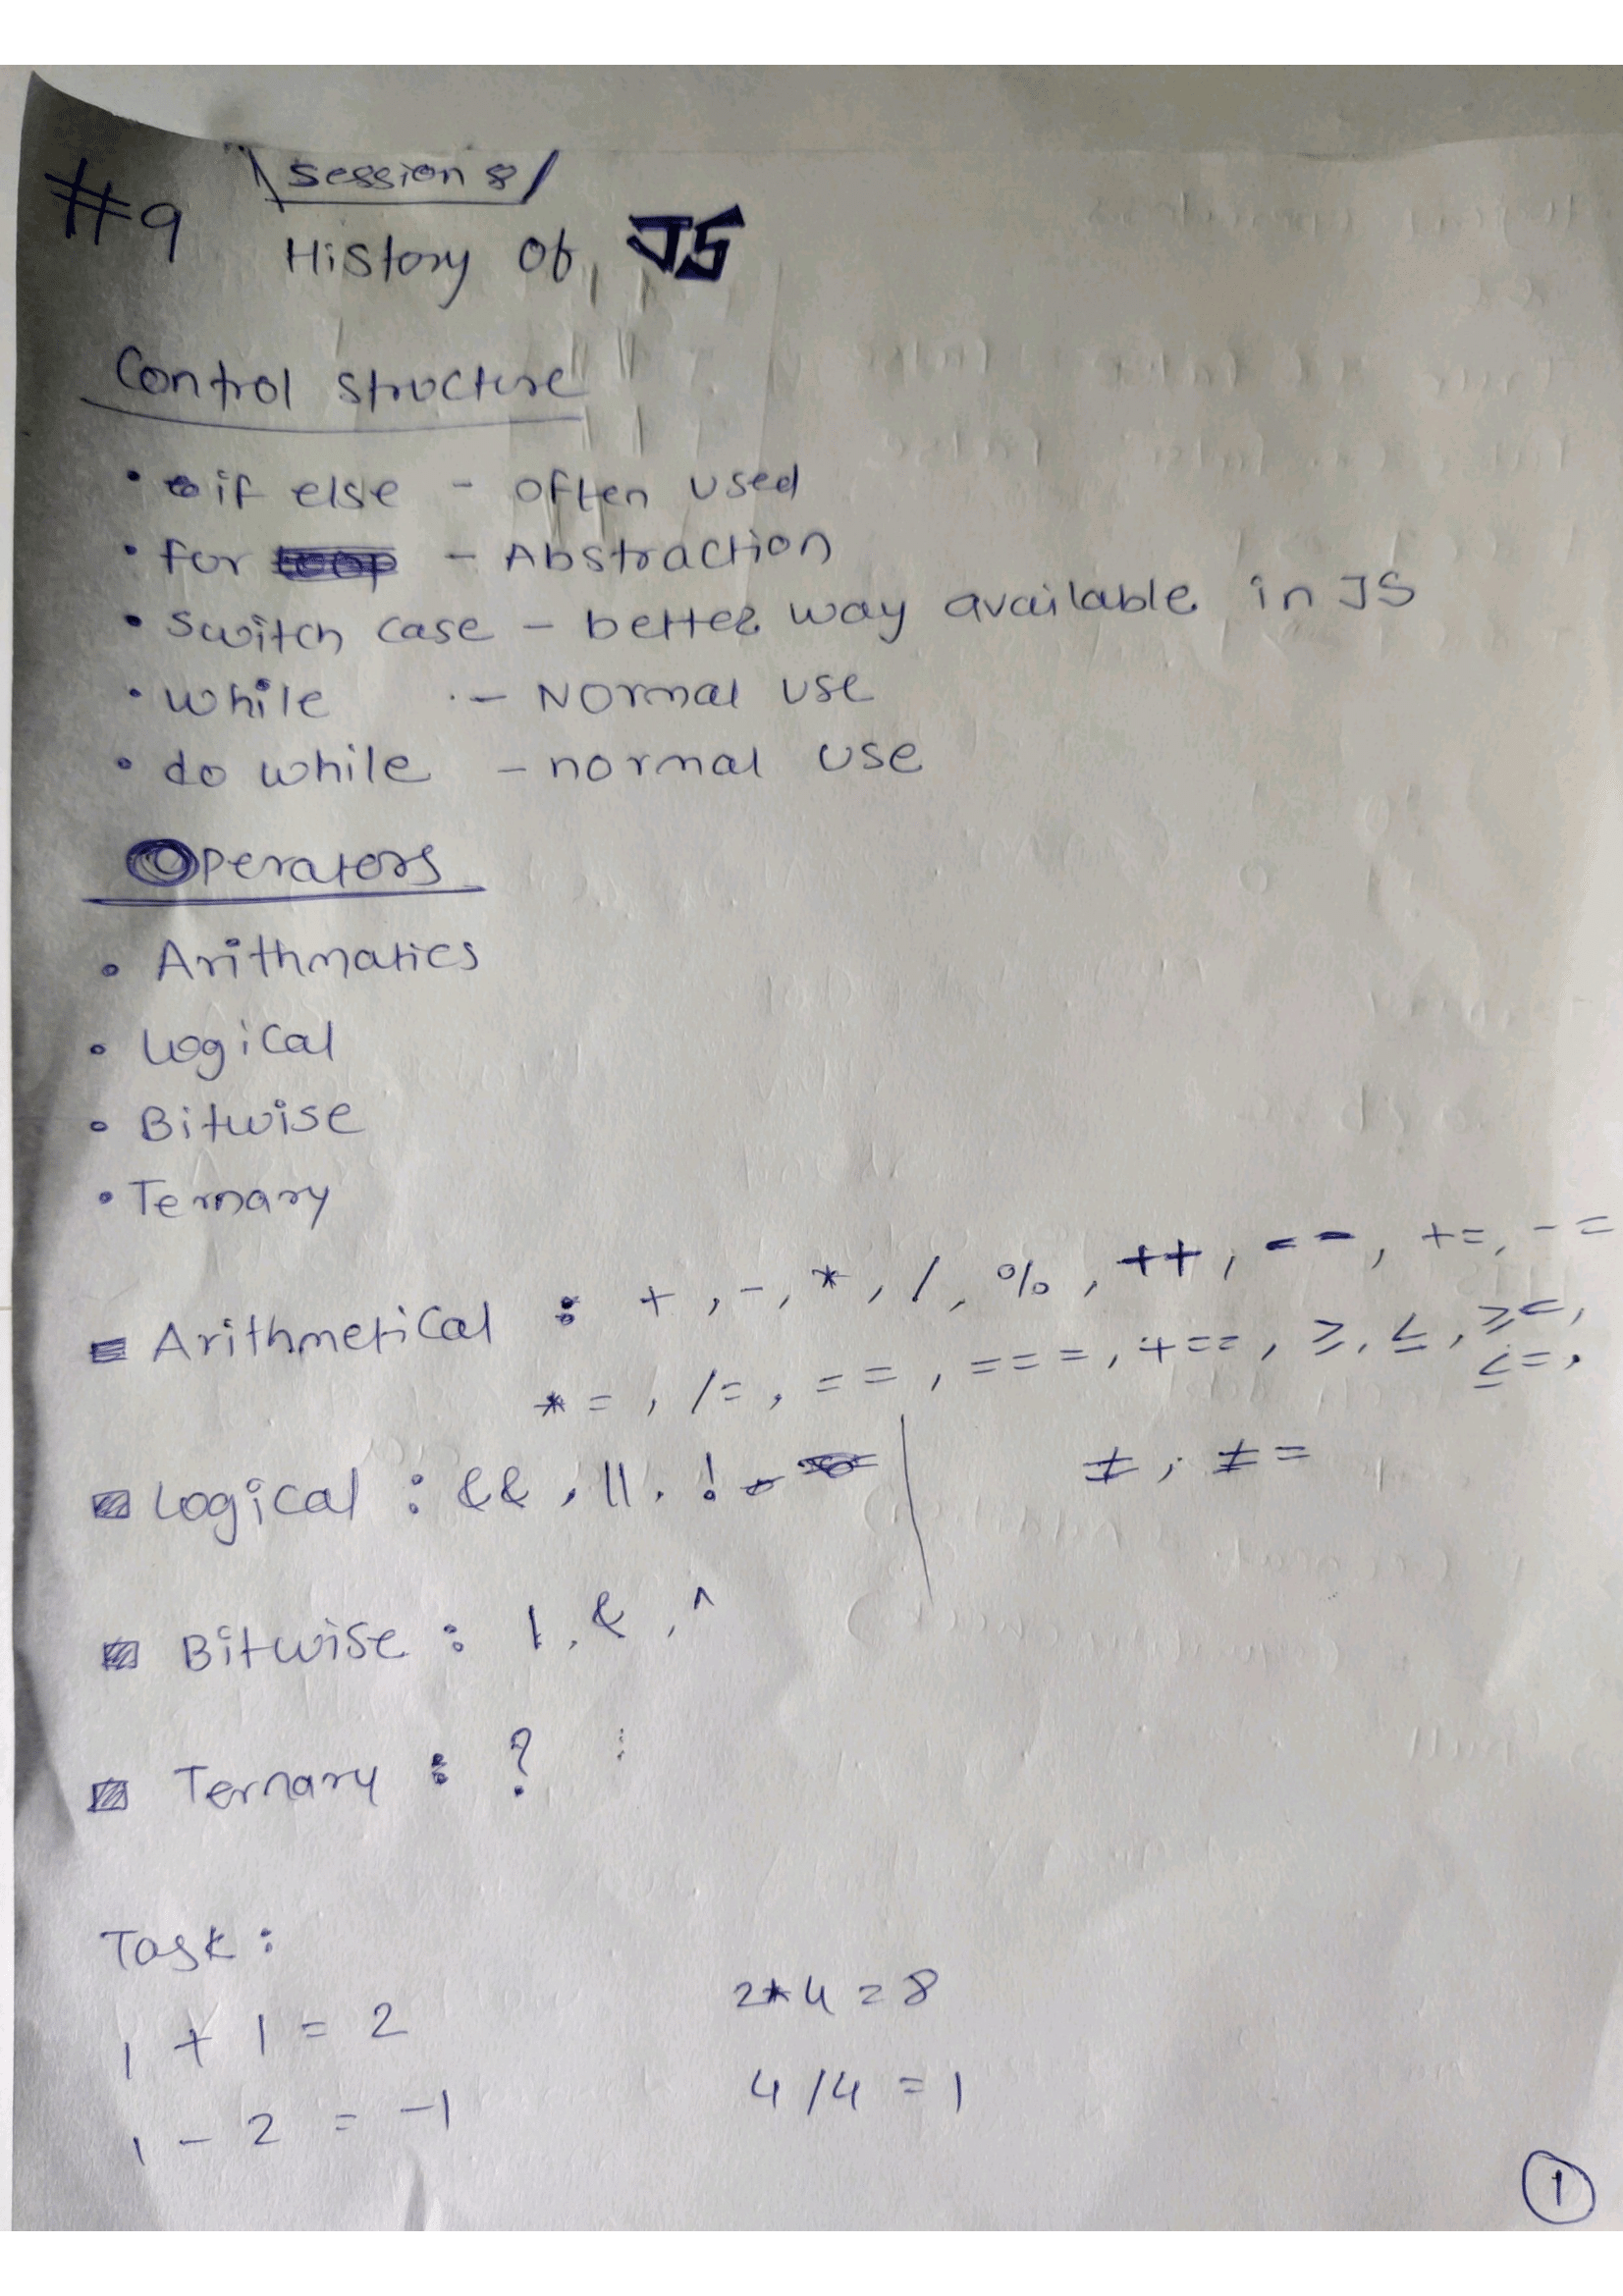 Session 8
#9
History of JS
Control structure
• if else - often used
• for - Abstraction
• switch case - better way available in JS
• while - Normal use
• do while - normal use
Operators
• Arithmatics
• Logical
• Bitwise
• Ternary
Arithmetical : + , - , * , / , % , ++ , -- , += , -=
*= , /= , == , === , +== , ≥ , ≤ , ≥= , ≤= ,
Logical : && , || , ! ≠ , ≠=
Bitwise : | , & , ^
Ternary : ? :
Task :
1 + 1 = 2 2*4 = 8
1 - 2 = -1 4/4 = 1
1